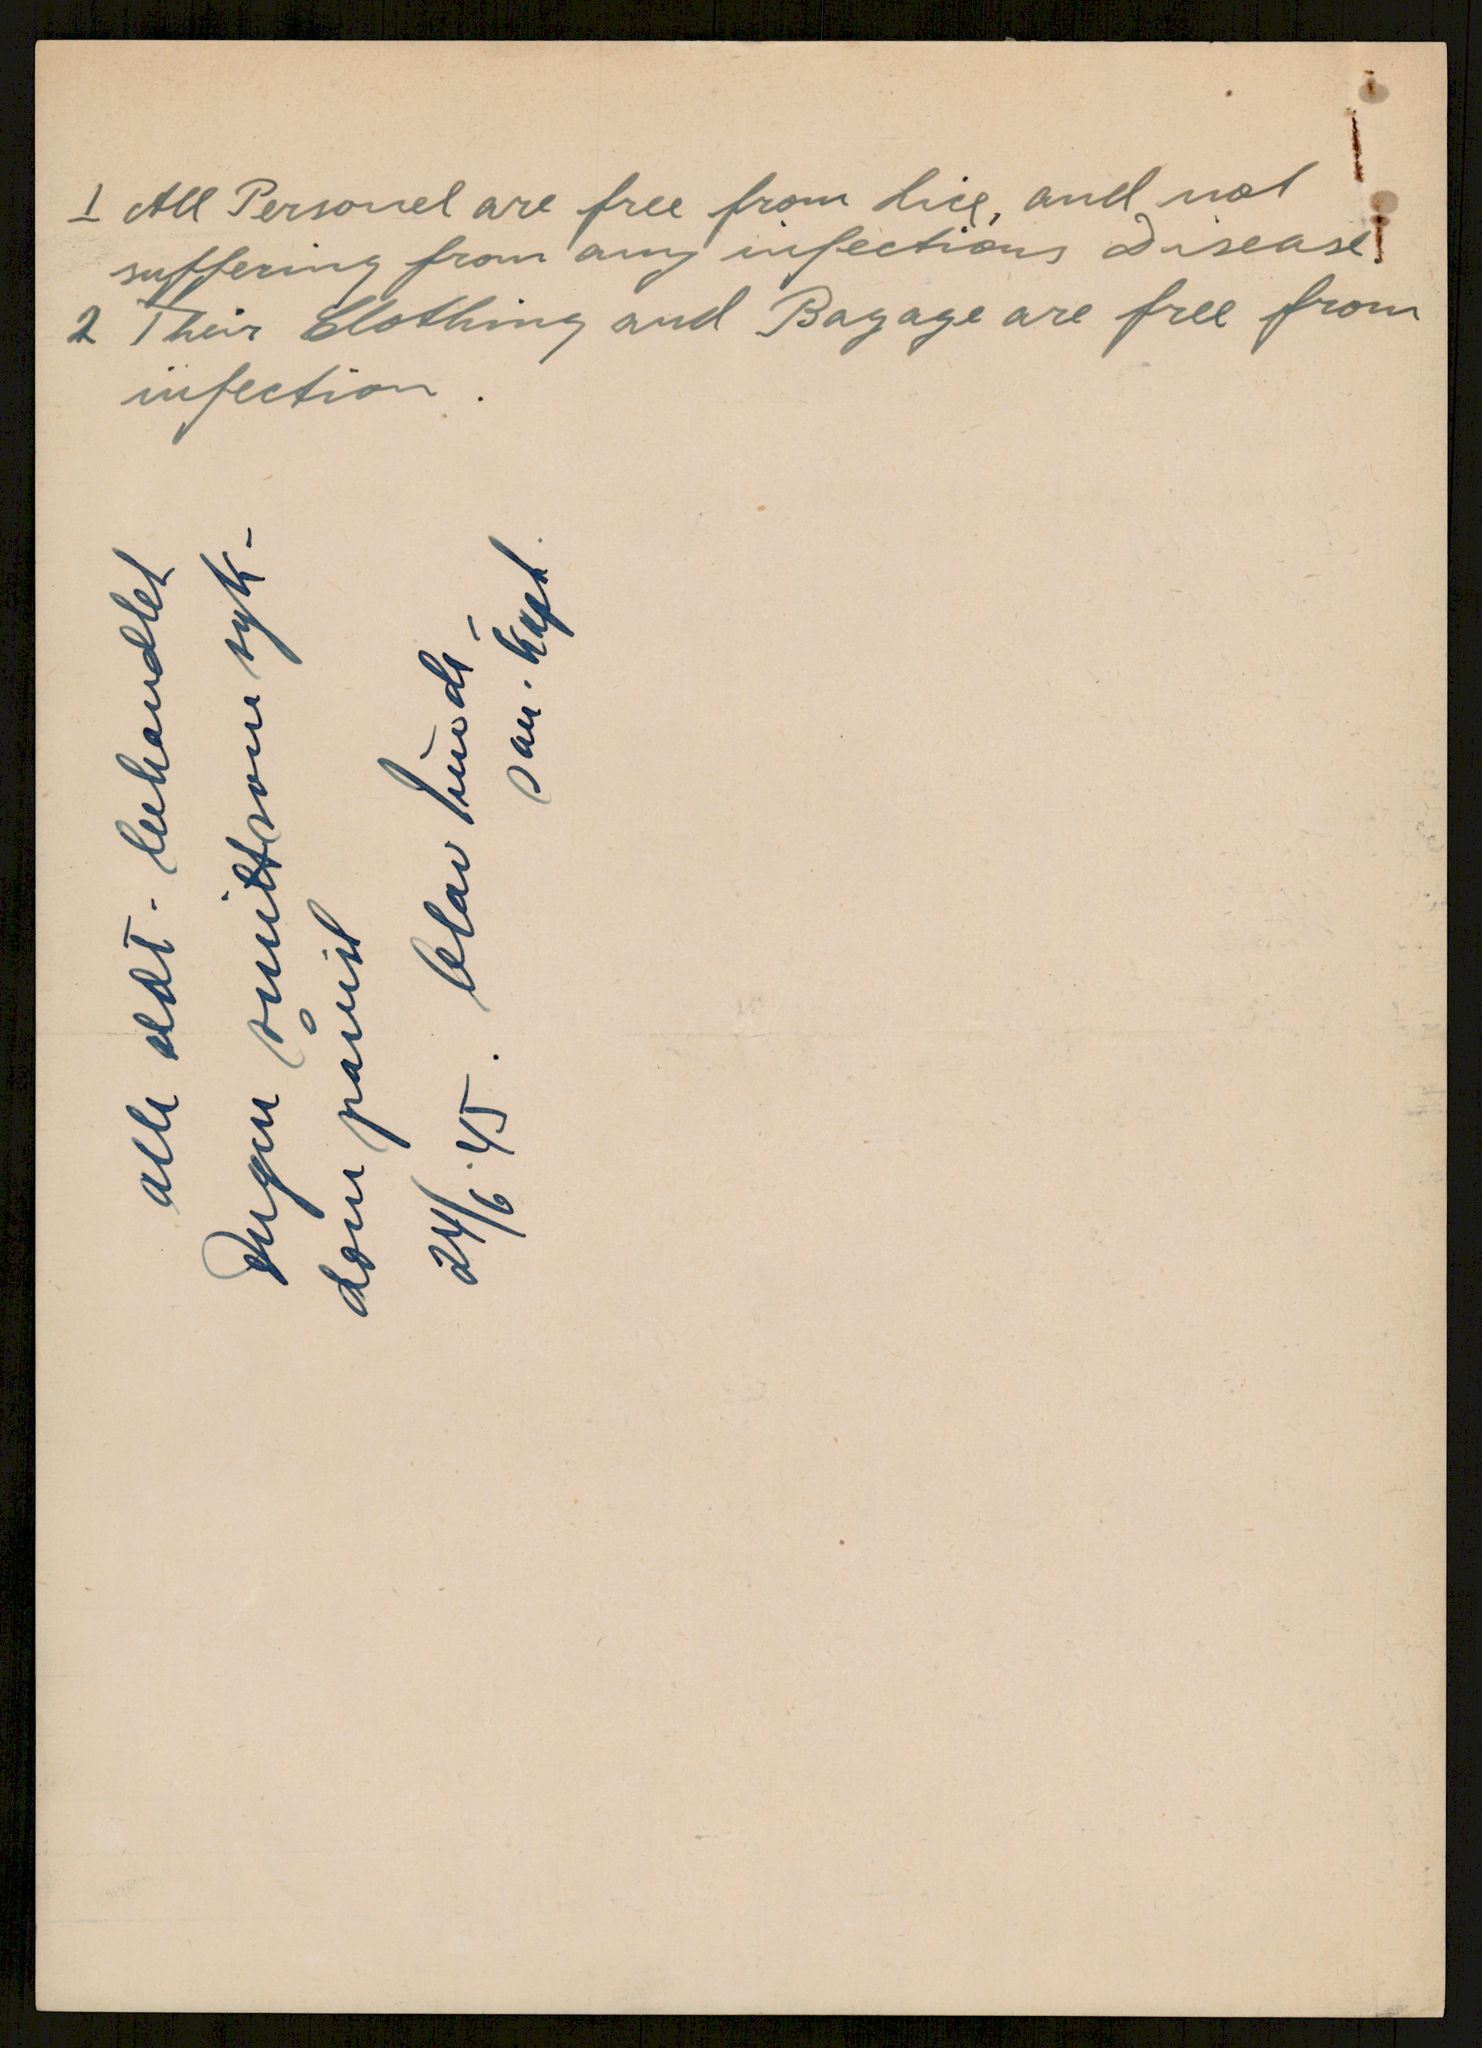 1 All Personel are free from Lice, and not
suffering from any infectious Disease.
2 Their Clothing and Bagage are free from
infection.
alle DDT-behandlet
Ingen smittsom syk-
dom påvist
24/6.45. Olav
san.kapt.